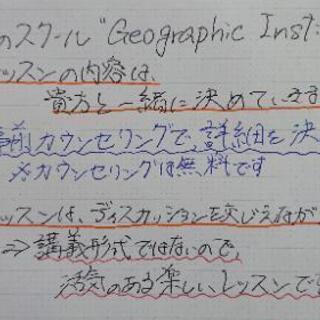 のスクール "Geographic Inst
ッスンの内容は、
貴方と一緒に決めていきま
前カウンセリングで、詳細を決
※カウンセリングは無料です
ッスンは、ディスカッションを交じえなが
⇒講義形式ではないので、
活気のある楽しいレッスンです